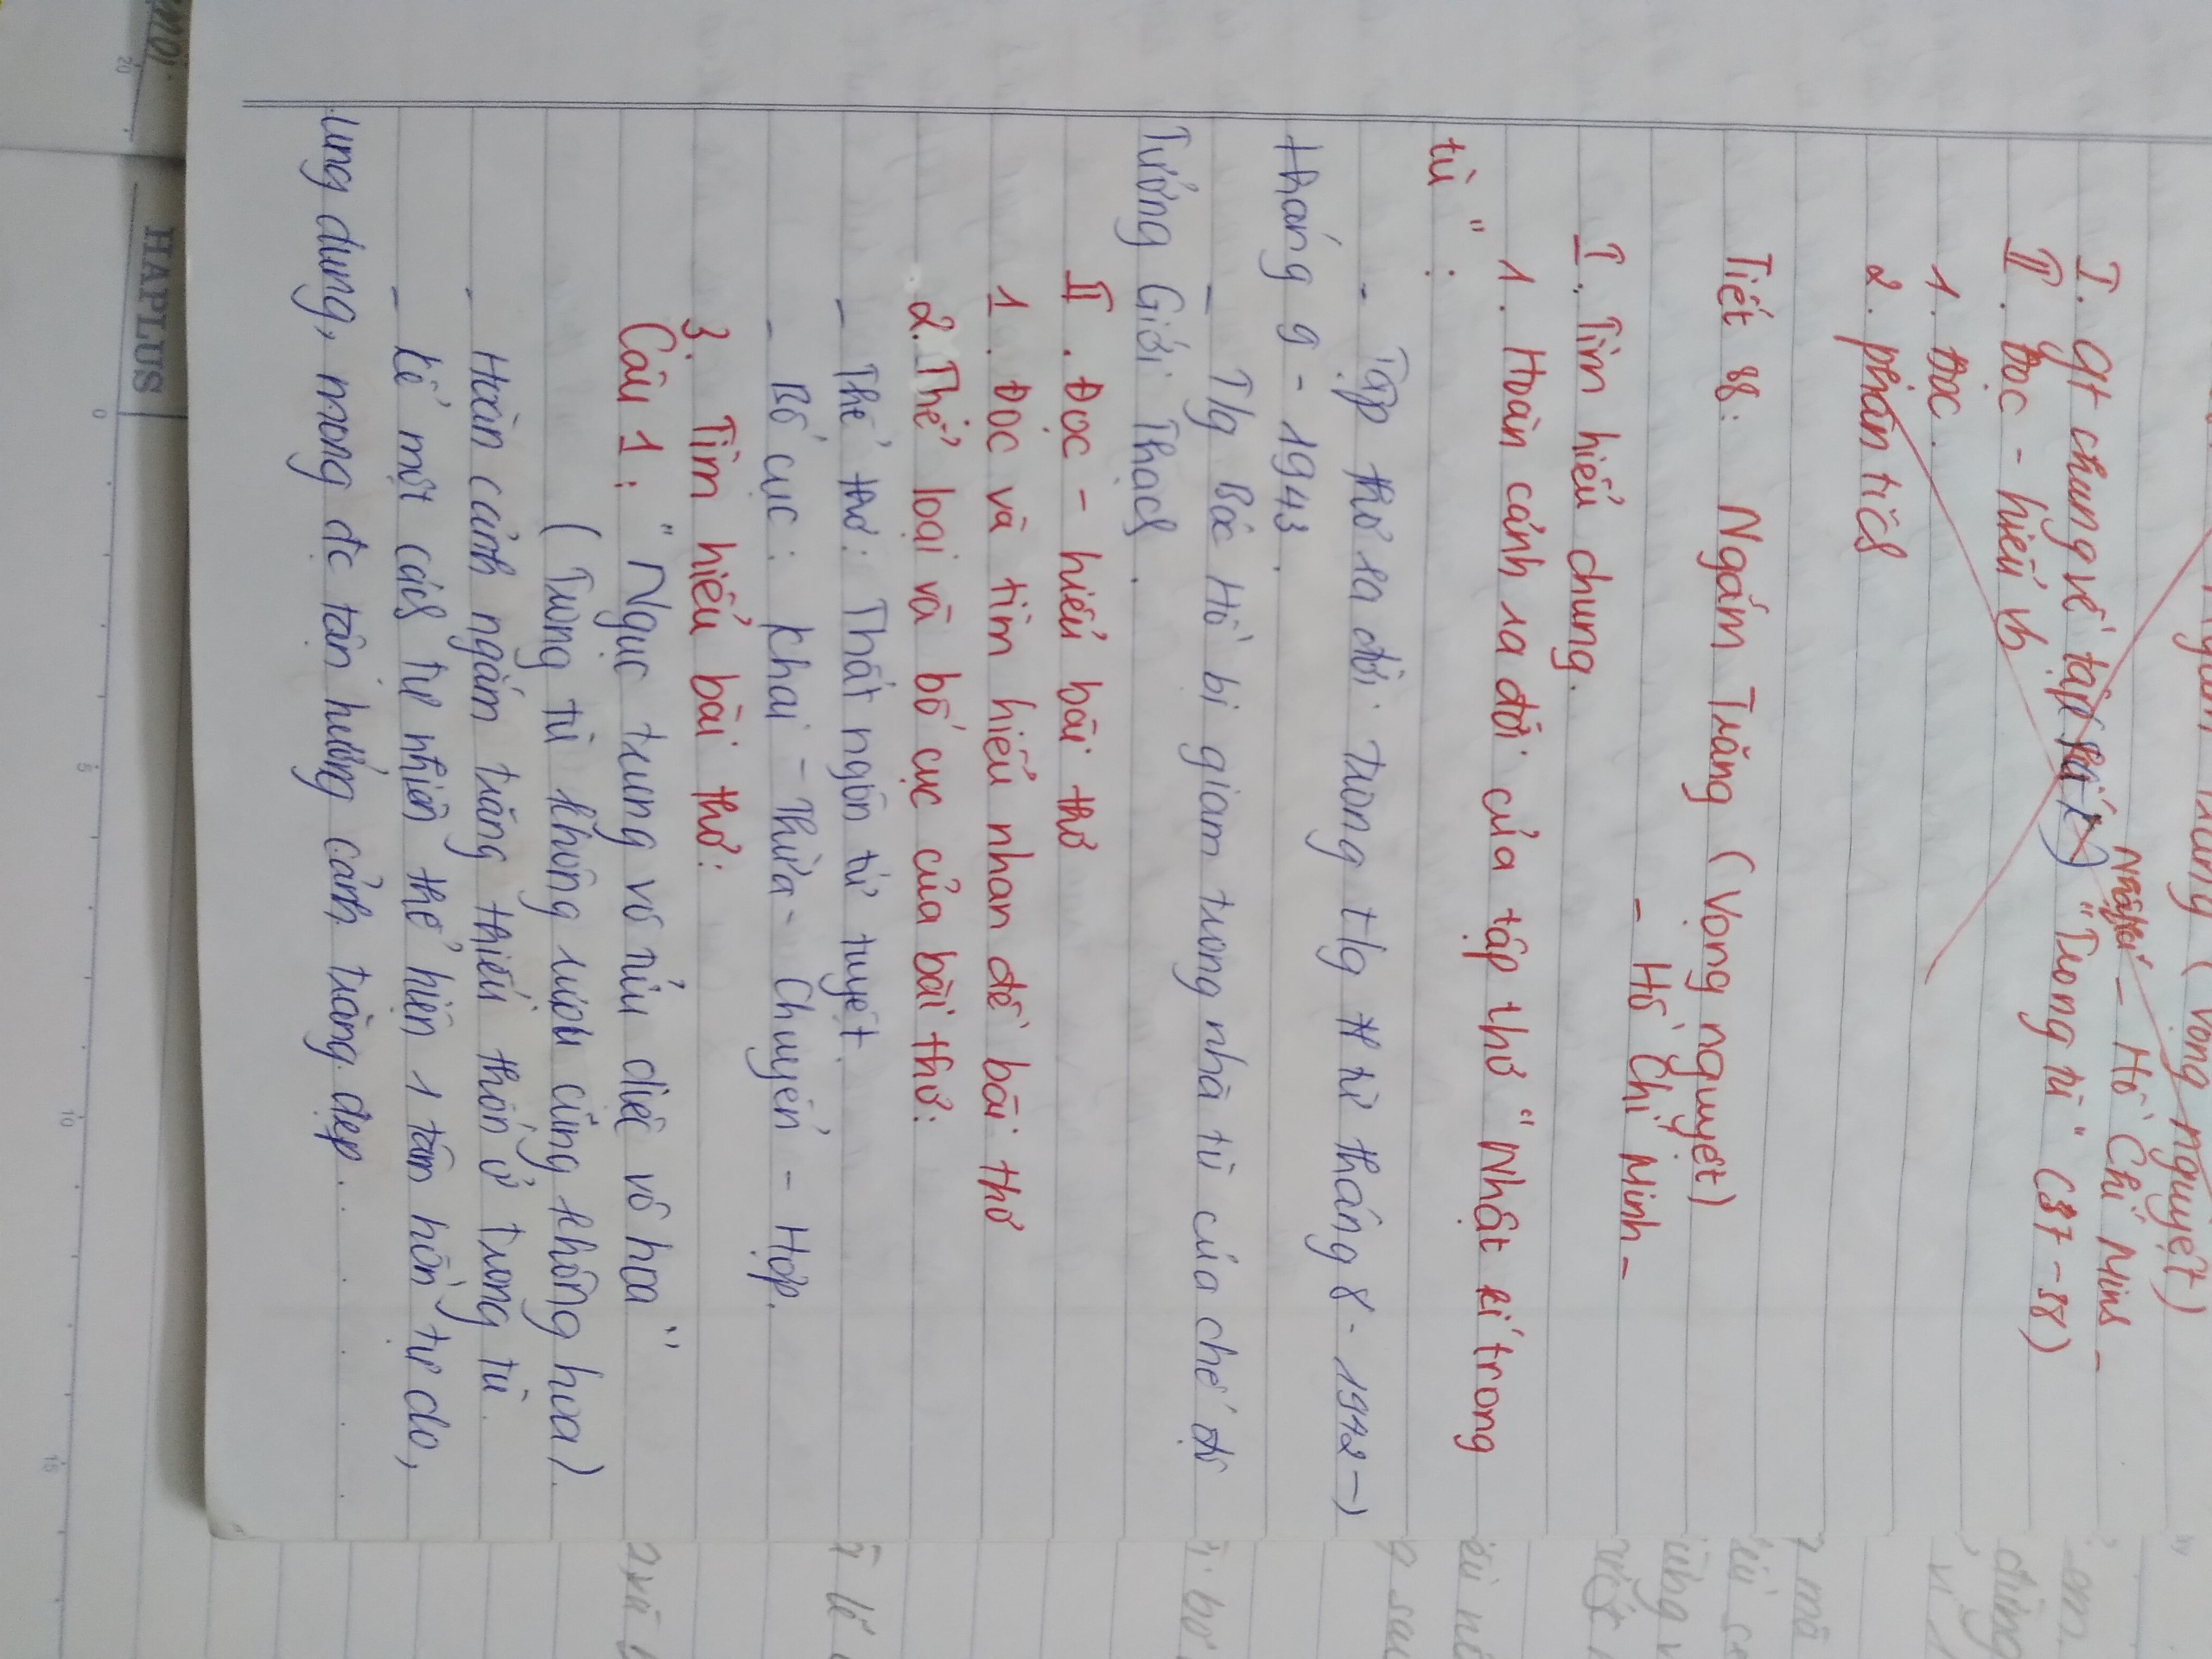 Ngắm Trăng (Vọng nguyệt)
Nhật kí - Hồ Chí Minh -
I. Gt chung về tập "Trong tù" (37-38)
II. Đọc - hiểu vb
1. Đọc.
2. phân tích
Tiết 88: Ngắm Trăng (Vọng nguyệt)
- Hồ Chí Minh -
I. Tìm hiểu chung.
1. Hoàn cảnh ra đời của tập thơ "Nhật kí trong
tù":
- Tập thơ ra đời trong t/g từ tháng 8 - 1942 →
tháng 9 - 1943.
- T/g Bác Hồ bị giam trong nhà tù của chế độ
Tưởng Giới Thạch.
II. Đọc - hiểu bài thơ
1. Đọc và tìm hiểu nhan đề bài thơ
2. Thể loại và bố cục của bài thơ:
- Thể thơ: Thất ngôn tứ tuyệt.
- Bố cục: Khai - Thừa - Chuyển - Hợp.
3. Tìm hiểu bài thơ:
Câu 1: "Ngục trung vô tửu diệc vô hoa"
(Trong tù không rượu cũng không hoa).
- Hoàn cảnh ngắm trăng thiếu thốn ở trong tù.
- Kể một cách tự nhiên thể hiện 1 tâm hồn tự do,
ung dung, mong đc tận hưởng cảnh trăng đẹp.
HAPLUS
20
0 5 10 15